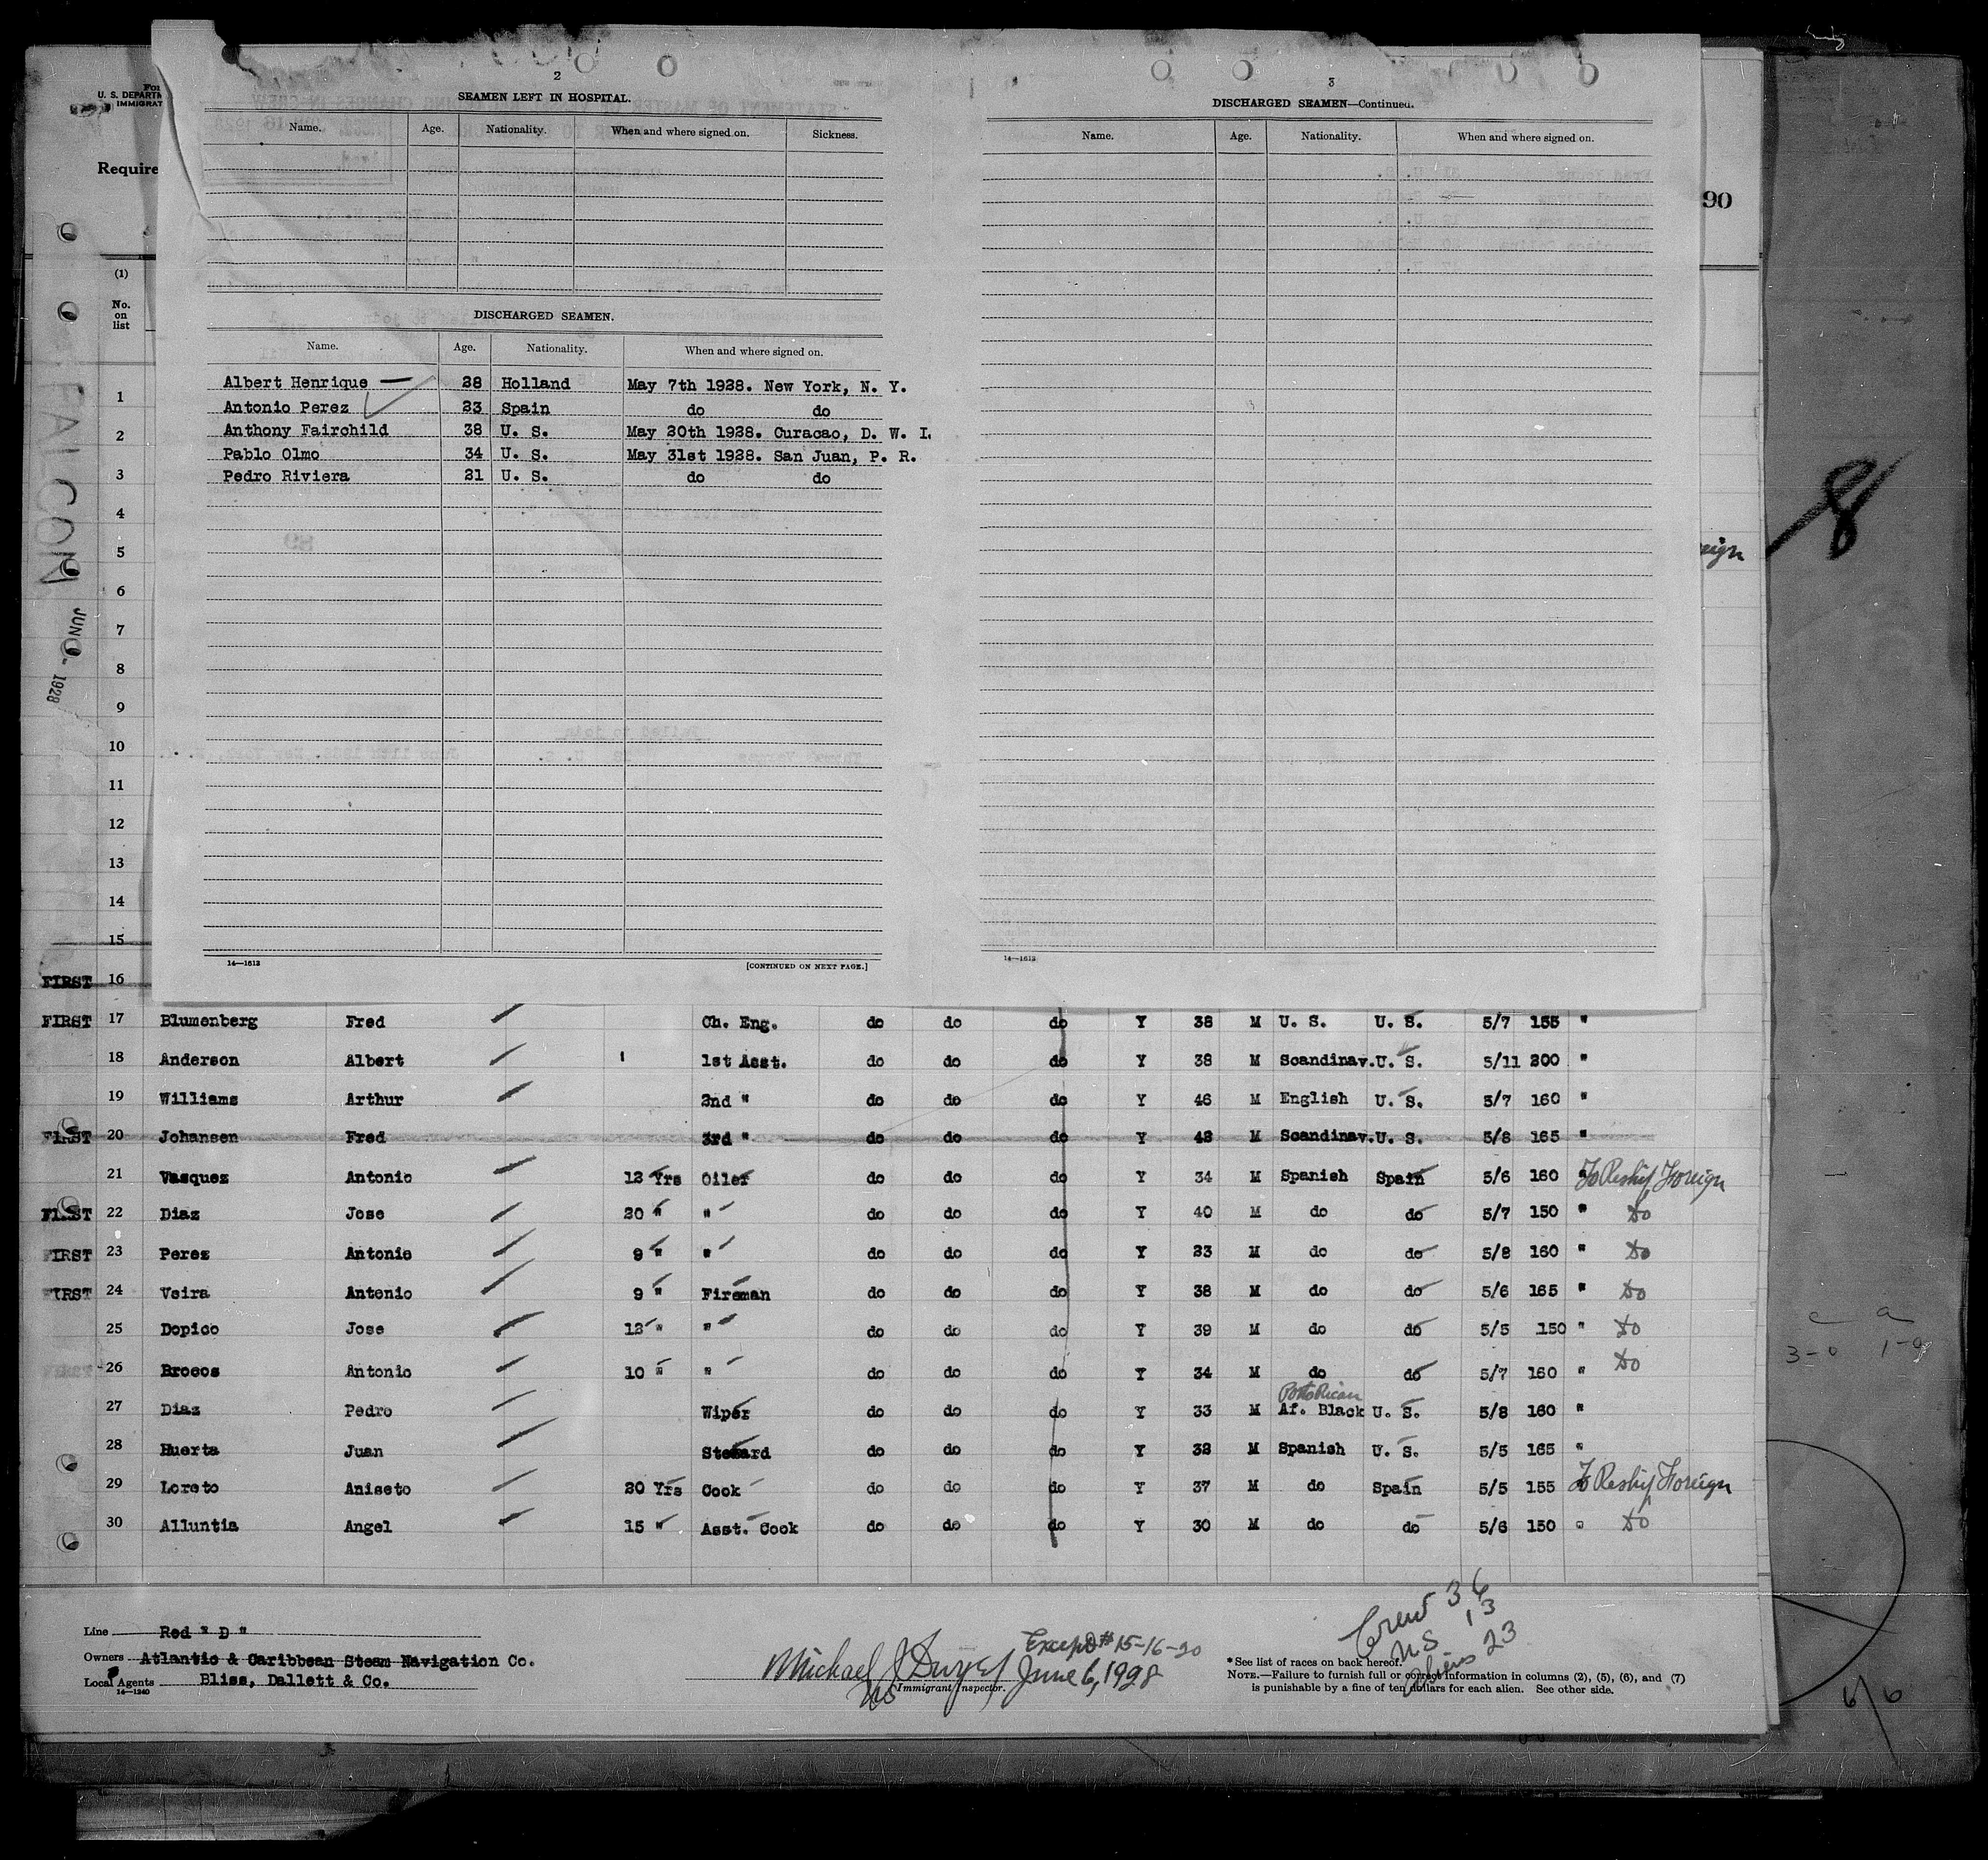 2
SEAMEN LEFT IN HOSPITAL.
Name. Age. Nationality. When and where signed on. Sickness.
DISCHARGED SEAMEN.
Name. Age. Nationality. When and where signed on.
Albert Henrique — 28 Holland May 7th 1928. New York, N. Y.
Antonio Perez 23 Spain do do
Anthony Fairchild 38 U. S. May 20th 1928. Curacao, D. W. I.
Pablo Olmo 34 U. S. May 31st 1928. San Juan, P. R.
Pedro Riviera 21 U. S. do do
14—1613
[CONTINUED ON NEXT PAGE.]
3
DISCHARGED SEAMEN—Continued.
Name. Age. Nationality. When and where signed on.
14—1613
U. S. DEPARTM
IMMIGRAT
Require
90
(1)
No. on list
FALCON
JUN 1928
8
eign
1
2
3
4
5
6
7
8
9
10
11
12
13
14
15
FIRST 16
FIRST 17 Blumenberg Fred Ch. Eng. do do do Y 38 M U. S. U. S. 5/7 155 "
18 Anderson Albert 1st Asst. do do do Y 38 M Scandinav. U. S. 5/11 200 "
19 Williams Arthur 2nd " do do do Y 46 M English U. S. 5/7 160 "
FIRST 20 Johansen Fred 3rd " do do do Y 42 M Scandinav. U. S. 5/8 165 "
21 Vasquez Antonio 12 Yrs Oiler do do do Y 34 M Spanish Spain 5/6 160 " To Reship Foreign
FIRST 22 Diaz Jose 20 " " do do do Y 40 M do do 5/7 150 " Do
FIRST 23 Perez Antonio 9 " " do do do Y 23 M do do 5/8 160 " Do
FIRST 24 Veira Antonio 9 " Fireman do do do Y 38 M do do 5/6 165 " Do
25 Dopico Jose 12 " " do do do Y 39 M do do 5/5 150 " Do
FIRST 26 Brocos Antonio 10 " " do do do Y 34 M do do 5/7 160 " Do
Porto Rican
27 Diaz Pedro Wiper do do do Y 33 M Af. Black U. S. 5/8 160 "
28 Huerta Juan Steward do do do Y 32 M Spanish U. S. 5/5 165 "
29 Loreto Aniseto 20 Yrs Cook do do do Y 37 M do Spain 5/5 155 To Reship Foreign
30 Alluntia Angel 15 " Asst. Cook do do do Y 30 M do do 5/6 150 " Do
3-0 1-0
Crew 36
US 13
Aliens 23
Line Red " D "
Owners Atlantic & Caribbean Steam Navigation Co.
Local Agents Bliss, Dallett & Co.
14—1240
Except # 15-16-20
Michael J Dwyer June 6, 1928
Immigrant Inspector.
* See list of races on back hereof.
NOTE.—Failure to furnish full or correct information in columns (2), (5), (6), and (7)
is punishable by a fine of ten dollars for each alien. See other side.
6/6